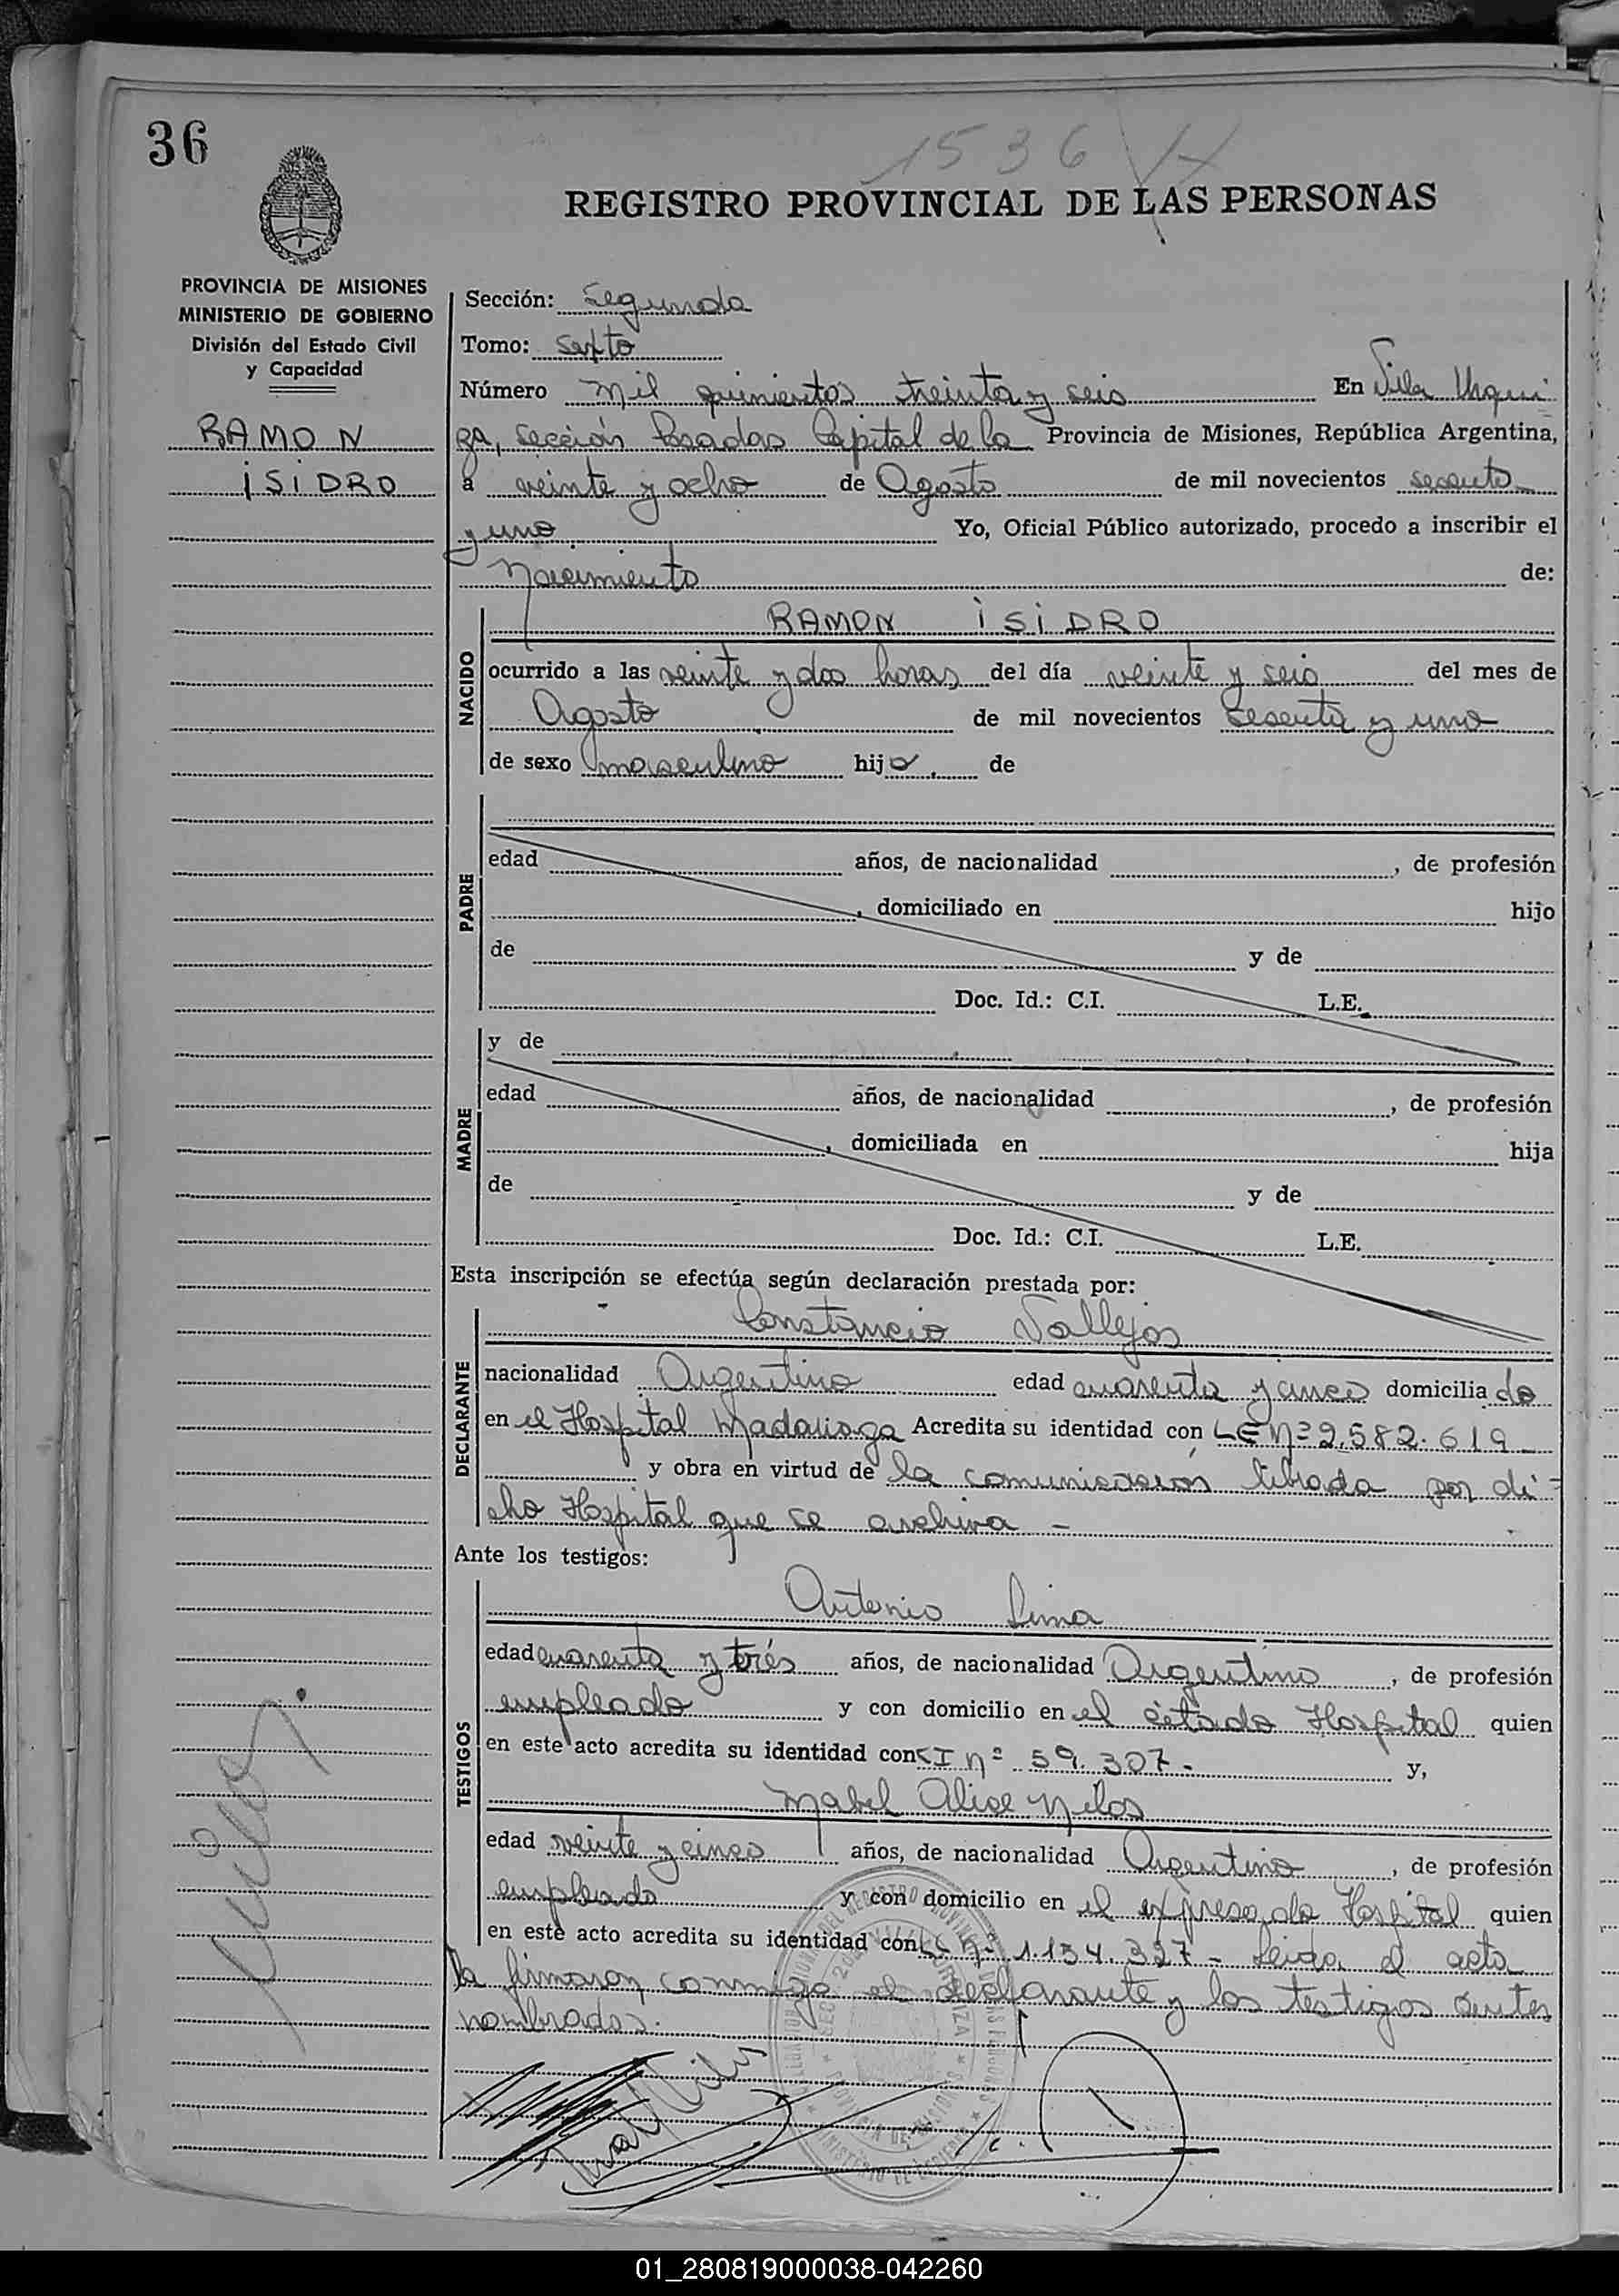 36
1536
REGISTRO PROVINCIAL DE LAS PERSONAS
PROVINCIA DE MISIONES
MINISTERIO DE GOBIERNO
División del Estado Civil
y Capacidad
RAMON
ISIDRO
Sección: Segunda
Tomo: Sexto
Número mil quinientos treinta y seis En Villa Urqui
za, Sección Posadas Capital de la Provincia de Misiones, República Argentina,
a veinte y ocho de Agosto de mil novecientos sesenta
y uno Yo, Oficial Público autorizado, procedo a inscribir el
Nacimiento de:
NACIDO
RAMON ISIDRO
ocurrido a las veinte y dos horas del día veinte y seis del mes de
Agosto de mil novecientos sesenta y uno
de sexo masculino hijo. de
PADRE
edad años, de nacionalidad , de profesión
, domiciliado en hijo
de y de
Doc. Id.: C.I. L.E.
MADRE
y de
edad años, de nacionalidad , de profesión
, domiciliada en hija
de y de
Doc. Id.: C.I. L.E.
Esta inscripción se efectúa según declaración prestada por:
DECLARANTE
Constancio Vallejos
nacionalidad Argentino edad cuarenta y cinco domiciliado
en el Hospital Madariaga Acredita su identidad con LE Nº 2.582.619
y obra en virtud de la comunicación librada por di-
cho Hospital que se archiva -
Ante los testigos:
TESTIGOS
Antonio Lima
edad cuarenta y trés años, de nacionalidad Argentino, de profesión
empleado y con domicilio en el citado Hospital quien
en este acto acredita su identidad con CI Nº 59.307.- y,
Mabel Alice
edad veinte y cinco años, de nacionalidad Argentina, de profesión
empleada y con domicilio en el expresado Hospital quien
en este acto acredita su identidad con Nº 1.134.327 - Leida el acta
la firmaron conmigo el declarante y los testigos antes
nombrados.
01_280819000038-042260